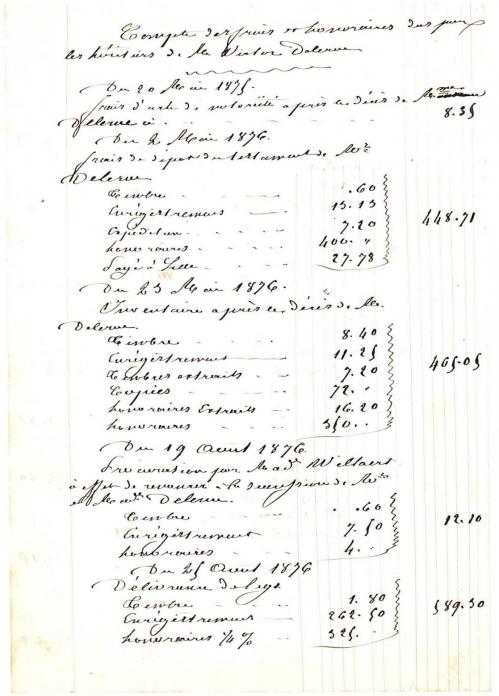 Compte des frais et honoraires dus par
les héritiers de Mr Victor Delerue
Du 20 Mai 1875.
frais d'acte de notoriété après le décès de Mme
Delerue à 8.35
Du 2 Mai 1876.
frais de dépot du testament de Mr
Delerue
Timbre .60
Enregistrement 13.13
Expédition 7.20
honoraires 400. " 448.71
Payé à Lille 27.78
Du 23 Mai 1876.
Inventaire après le décès de Mr
Delerue
Timbre 8.40
Enregistrement 11.25
Timbres extraits 7.20 465.05
Copies 72. "
honoraires Extraits 16.20
honoraires 350. .
Du 19 Aout 1876.
Procuration par Made Wellaert
à effet de renoncer à la succession de Mr
et Made Delerue.
Timbre .60
Enregistrement 7.50 12.10
honoraires 4. .
Du 25 Aout 1876
Délivrance de legs
Timbre 1.80
Enregistrement 262.50 589.30
honoraires 1/4 % 325. .